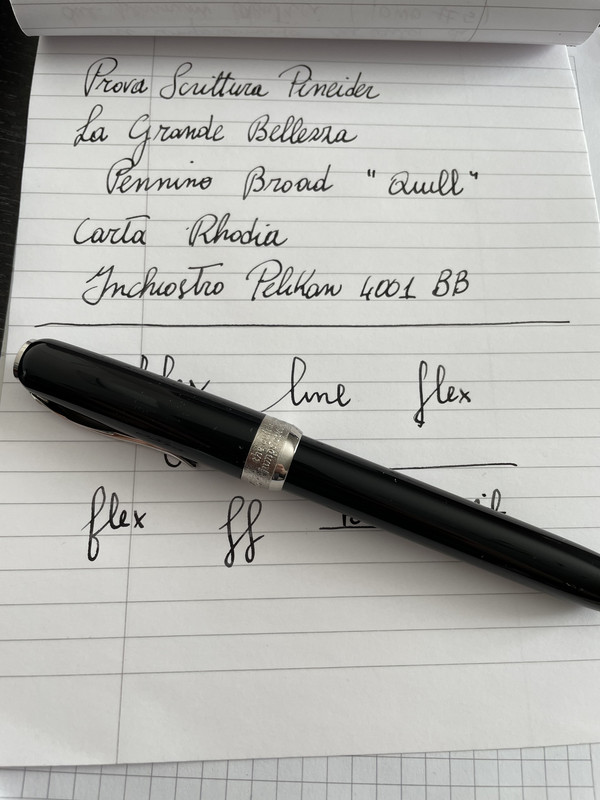 Prova Scrittura Pineider
La Grande Bellezza
Pennino Broad "Quill"
Carta Rhodia
Inchiostro Pelikan 4001 BB
line flex
flex ff